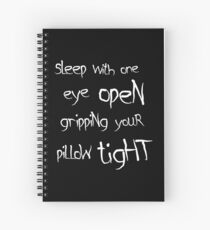 sleep with one
eye open
gripping your
pillow tight